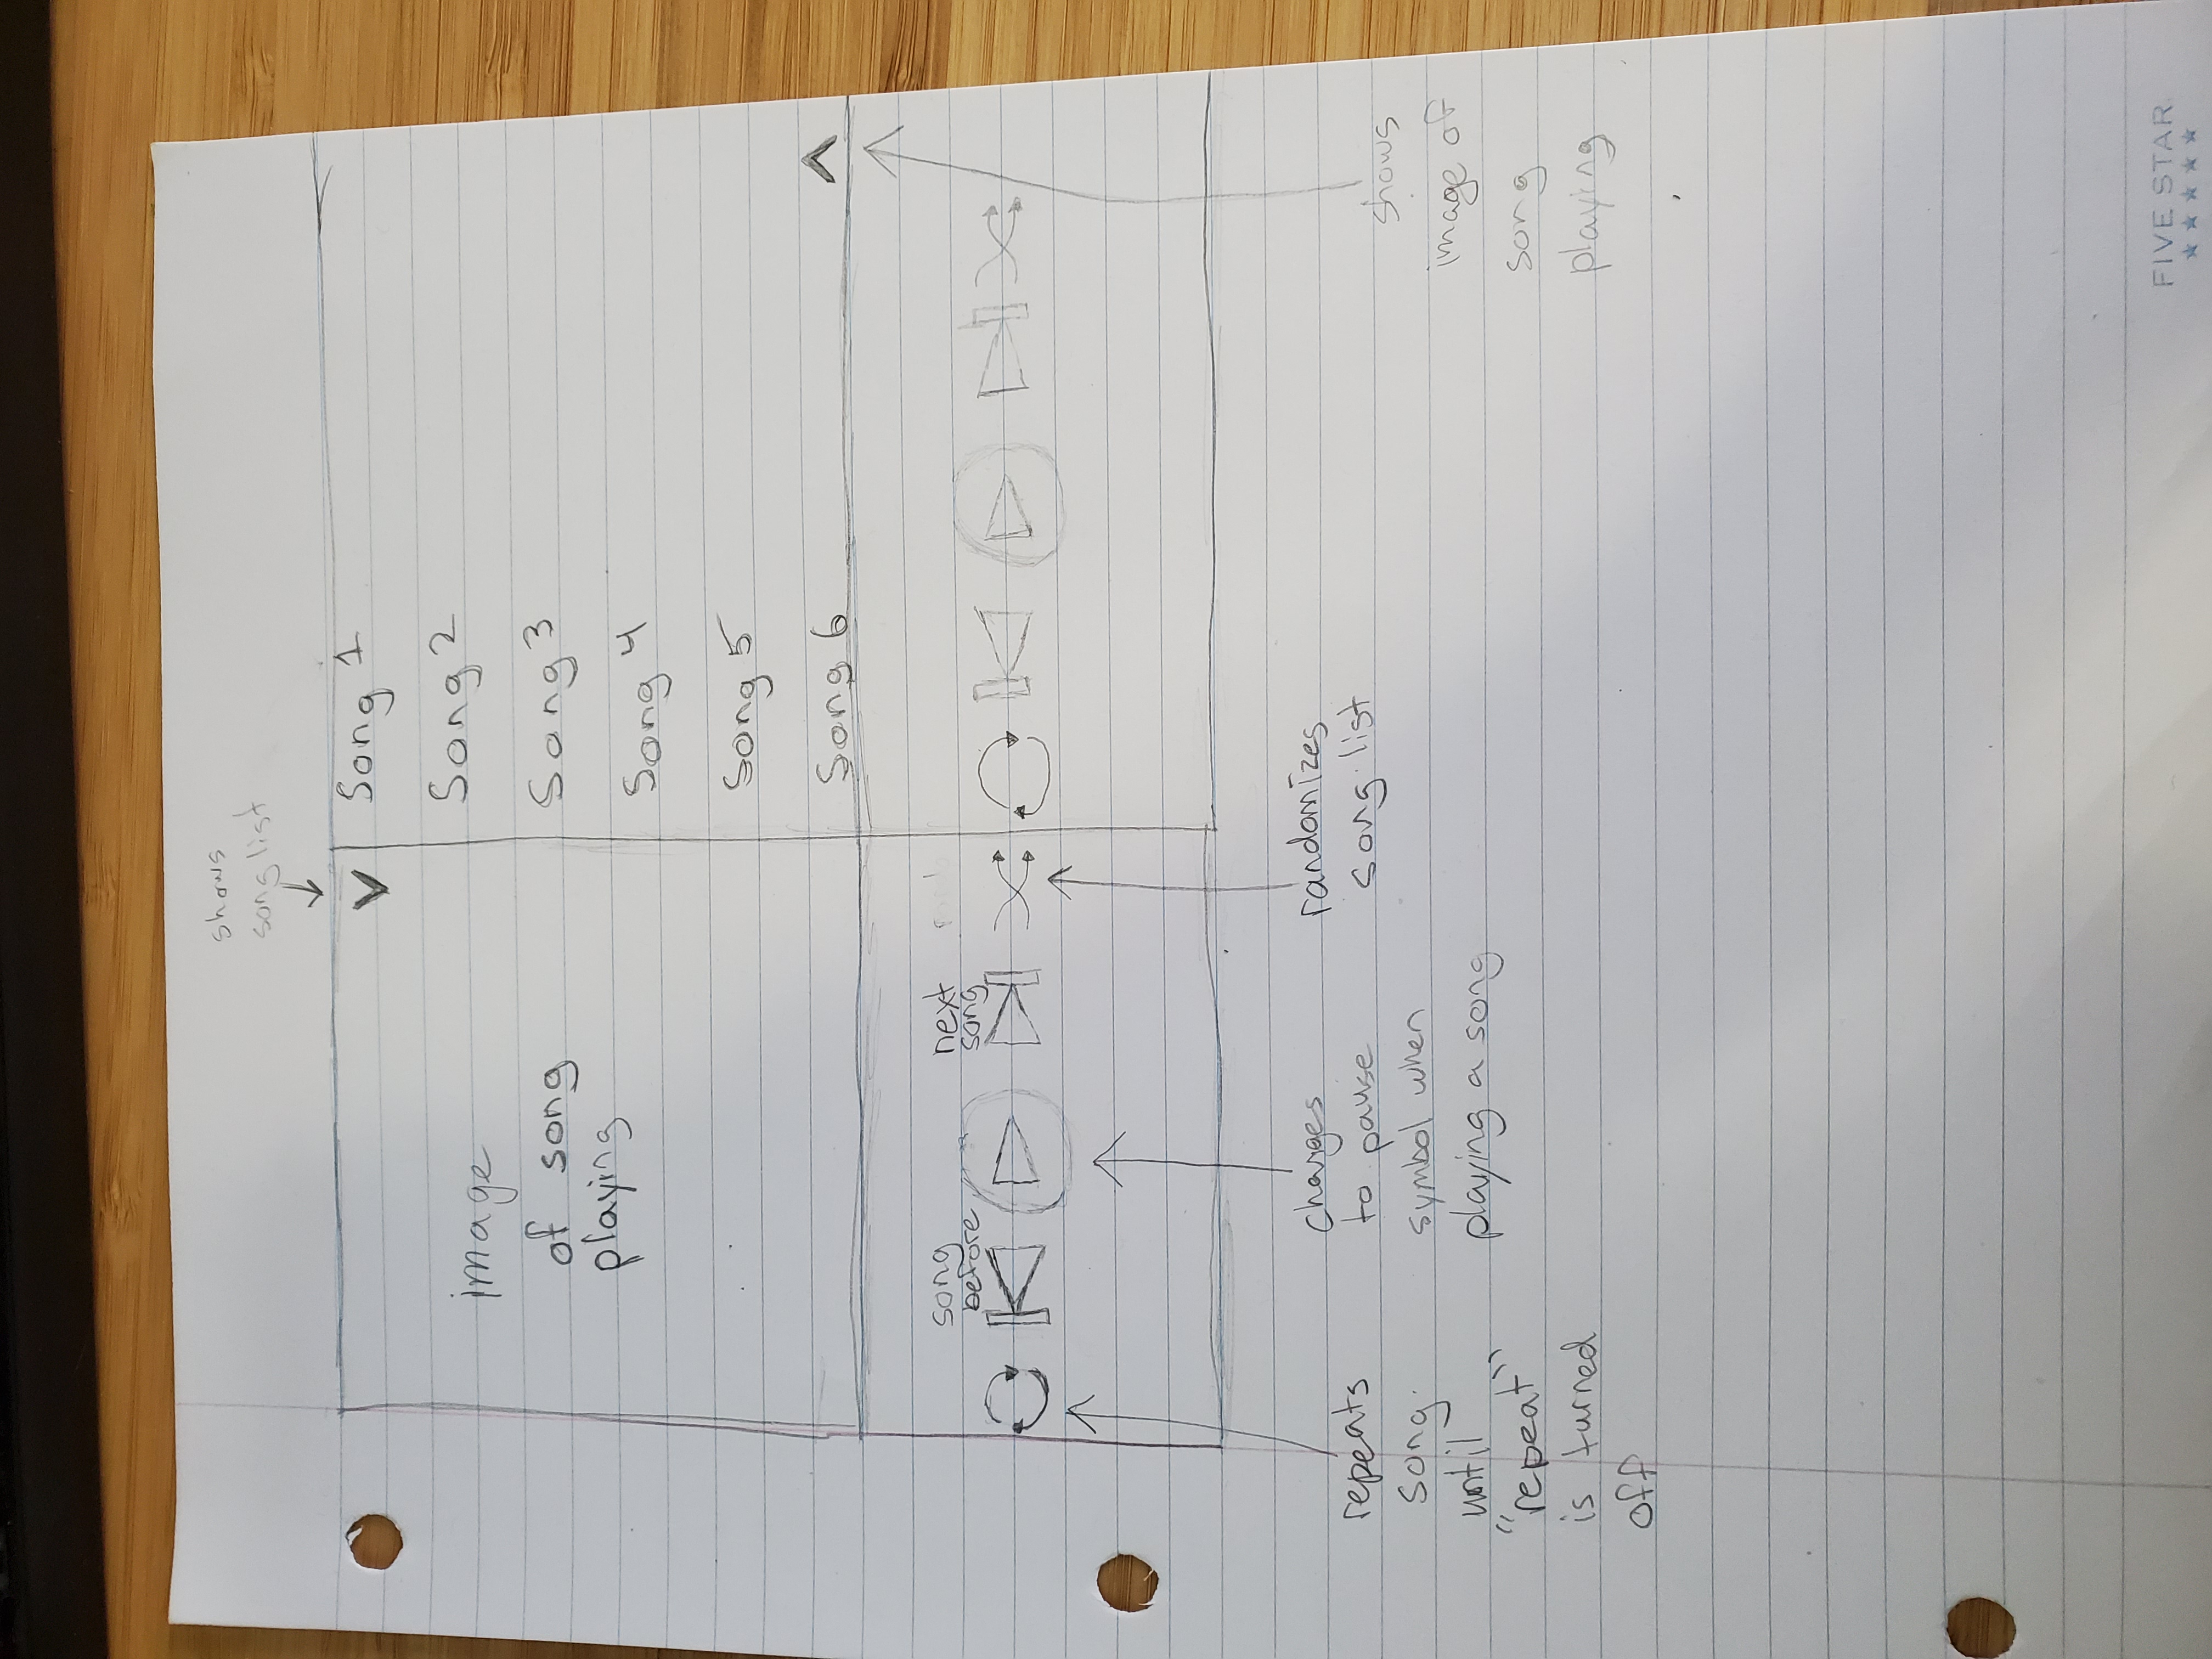 shows
song list
V
Song 1
Song 2
Song 3
Song 4
Song 5
Song 6
image
of song
playing
song
before
next
song
repeats
song
until
"repeat"
is turned
off
changes
to pause
symbol when
playing a song
randomizes
song list
shows
image of
song
playing
FIVE STAR